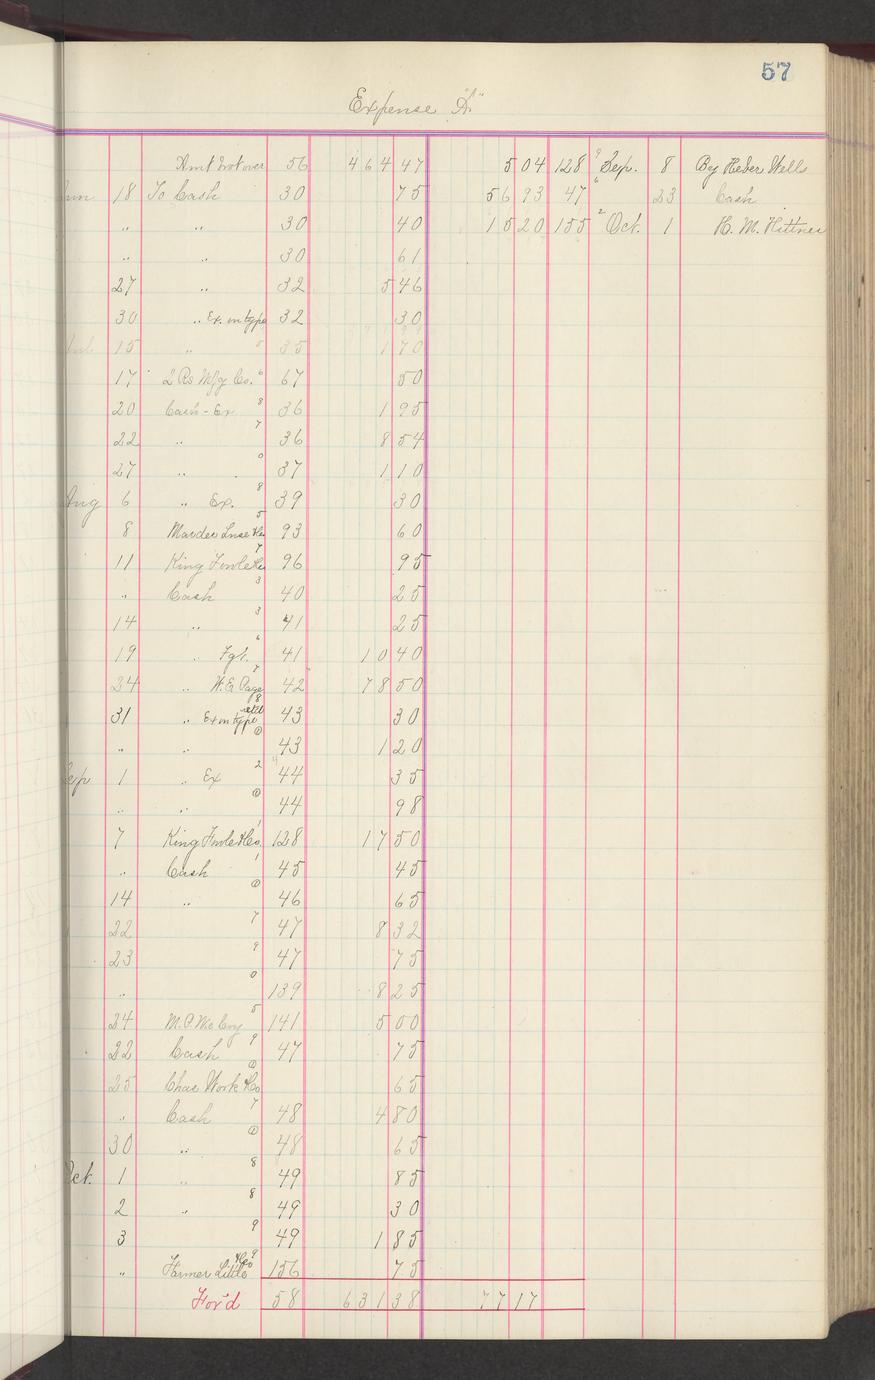 57
Expense "A"
Amt brot over 56 464 47 5 04 128 9 Sep. 8 By Heber Wells
Jun 18 To Cash 30 75 56 93 47 6 23 Cash
" " 30 40 15 20 155 2 Oct. 1 H. M.
" " 30 61
27 " 32 5 46
30 " Ex. on type 32 30
15 " 5 35 1 70
17 Mfg Co. 6 67 50
20 Cash - Ex 8 36 1 95
22 " 7 36 8 54
27 " 0 37 1 10
Aug 6 " Ex. 8 39 30
8 Marder Luse &Co 5 93 60
11 King Fowle &Co 7 96 95
" Cash 3 40 25
14 " 3 41 25
19 " Fgt. 6 41 10 40
24 " W. E. Page 7 42 78 50
31 " Ex on type 8 43 30
" " ① 43 1 20
Sep 1 " Ex 2 44 35
" " ① 44 98
7 King Fowle &Co. 1 128 17 50
" Cash 1 45 45
14 " ① 46 65
22 7 47 8 32
23 9 47 75
" 0 139 8 25
24 M. P. 5 141 5 00
22 Cash 9 47 75
25 Chas Work &Co ① 65
" Cash 7 48 4 80
30 " ① 48 65
Oct. 1 " 8 49 85
2 " 8 49 30
3 9 49 1 85
" Farmer Little &Co 9 156 75
For'd 58 631 38 77 17